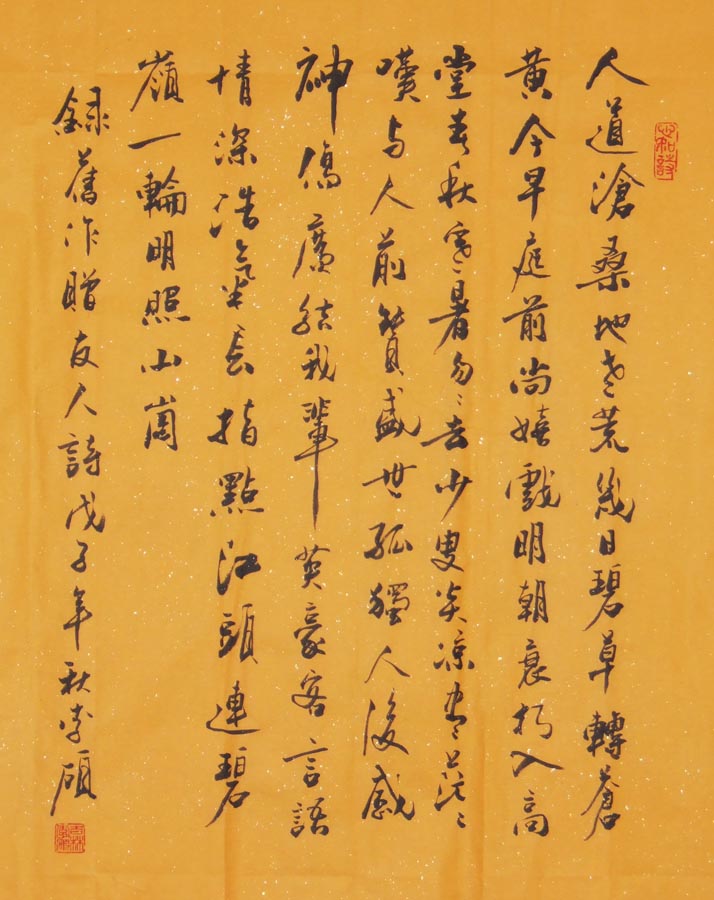 人道滄桑地老荒幾日碧草轉蒼
黄今早庭前尚嬉戲明朝衰朽入高
堂春秋寒暑匆々去少叟炎凉盡茫々
嘆与人前贊盛世孤獨人後感
神傷廣結我輩英豪客言語
情深浩氣長指點江頭連碧
嶺一輪明照山崗
錄舊作贈友人詩戊子年秋李碩